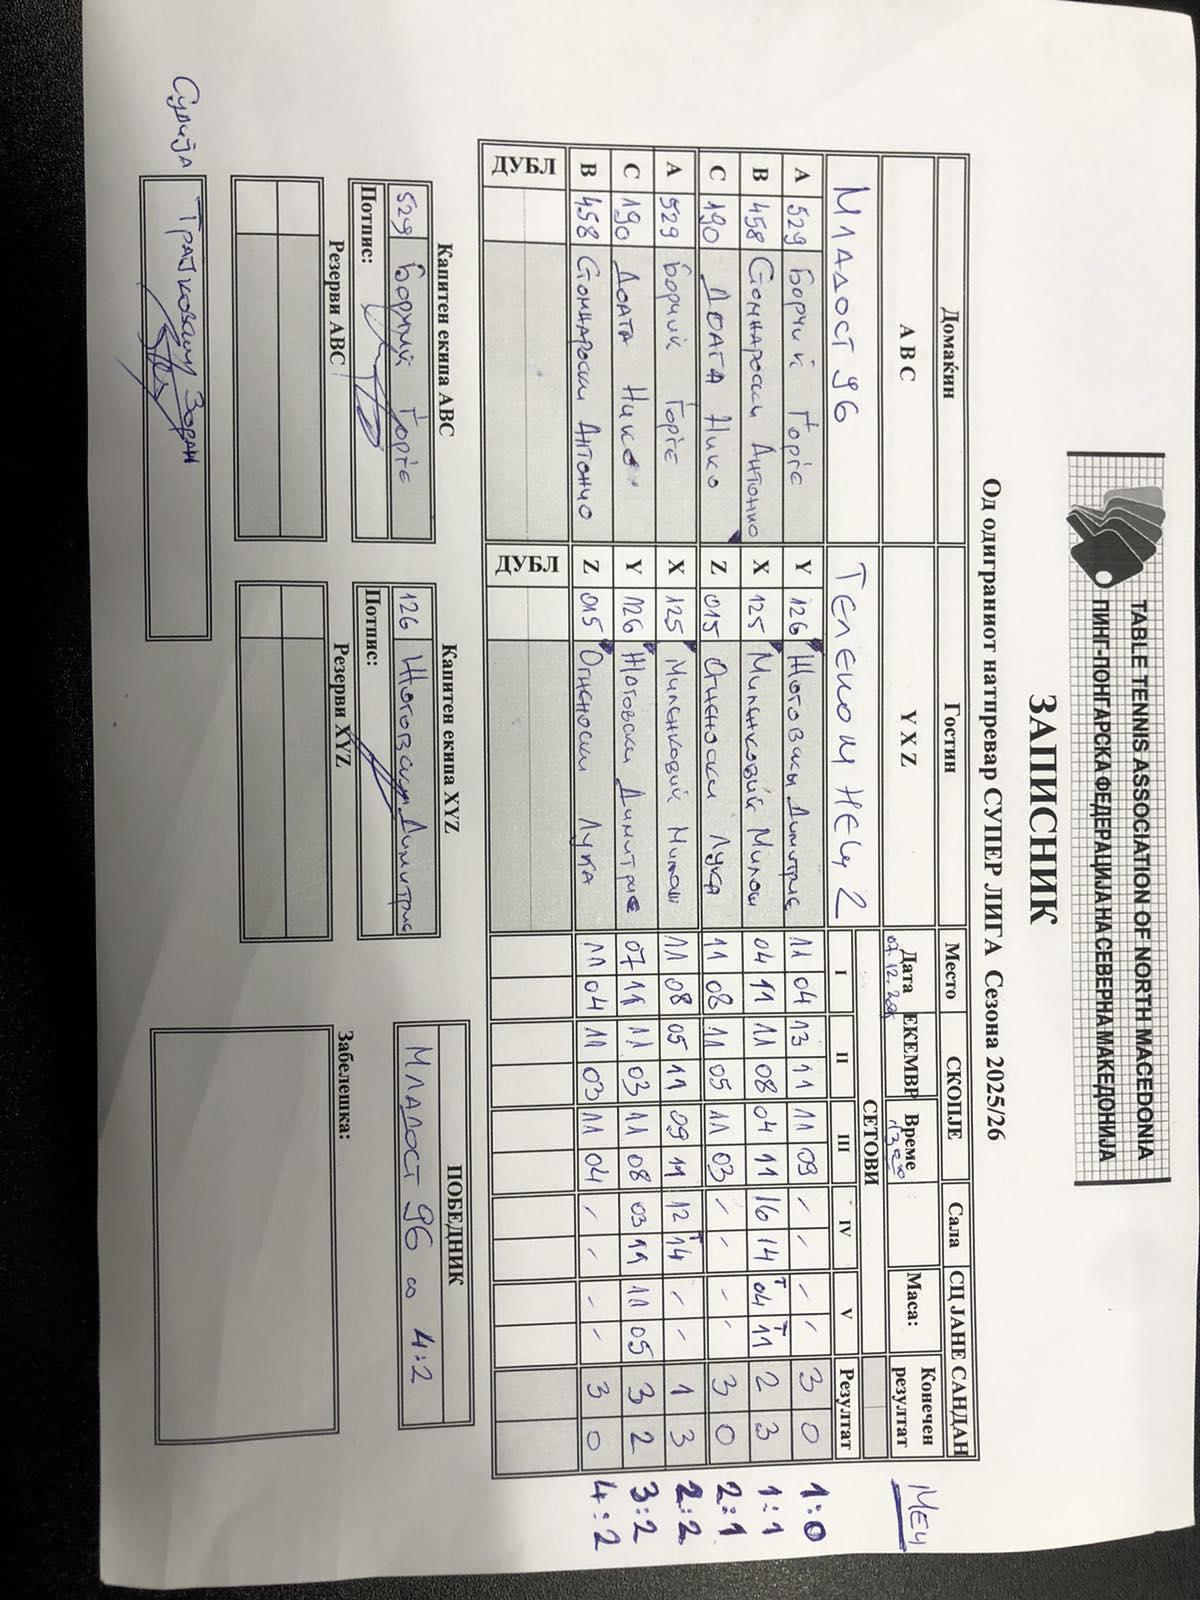 TABLE TENNIS ASSOCIATION OF NORTH MACEDONIA
ПИНГ-ПОНГАРСКА ФЕДЕРАЦИЈА НА СЕВЕРНА МАКЕДОНИЈА
ЗАПИСНИК
Од одиграниот натпревар СУПЕР ЛИГА Сезона 2025/26
Домаќин Гостин Место СКОПЈЕ Сала СЦ ЈАНЕ САНДАН
A B C Y X Z Дата ЕКЕМВР Време Маса: Конечен резултат МЕЧ
07.12.2025 13:00
МЛАДОСТ 96 ТЕЛЕКОМ НЕЦ 2 СЕТОВИ
I II III IV V Резултат
A 529 Борчиќ Ѓорѓе Y 126 Жоговски Димитриј 11 04 13 11 11 09 / / / / 3 0 1:0
B 458 Стоинароски Антонио X 125 Миленковиќ Милош 04 11 11 08 04 11 16 14 04 11 2 3 1:1
C 190 ДОАГА Нико Z 015 Огненоски Лука 11 08 11 05 11 03 / / / / 3 0 2:1
A 529 Борчиќ Ѓорѓе X 125 Миленковиќ Милош 11 08 05 11 09 11 12 14 / / 1 3 2:2
C 190 Доага Нико Y 126 Жоговски Димитрие 07 11 11 03 11 08 03 11 11 05 3 2 3:2
B 458 Стоинароски Антонио Z 015 Огненоски Лука 11 04 11 03 11 04 / / / / 3 0 4:2
ДУБЛ ДУБЛ
Капитен екипа ABC Капитен екипа XYZ ПОБЕДНИК
529 Борчиќ Ѓорѓе 126 Жоговски Димитриј МЛАДОСТ 96 со 4:2
Потпис: Потпис:
Резерви ABC Резерви XYZ Забелешка:
Судија Трајковски Зоран